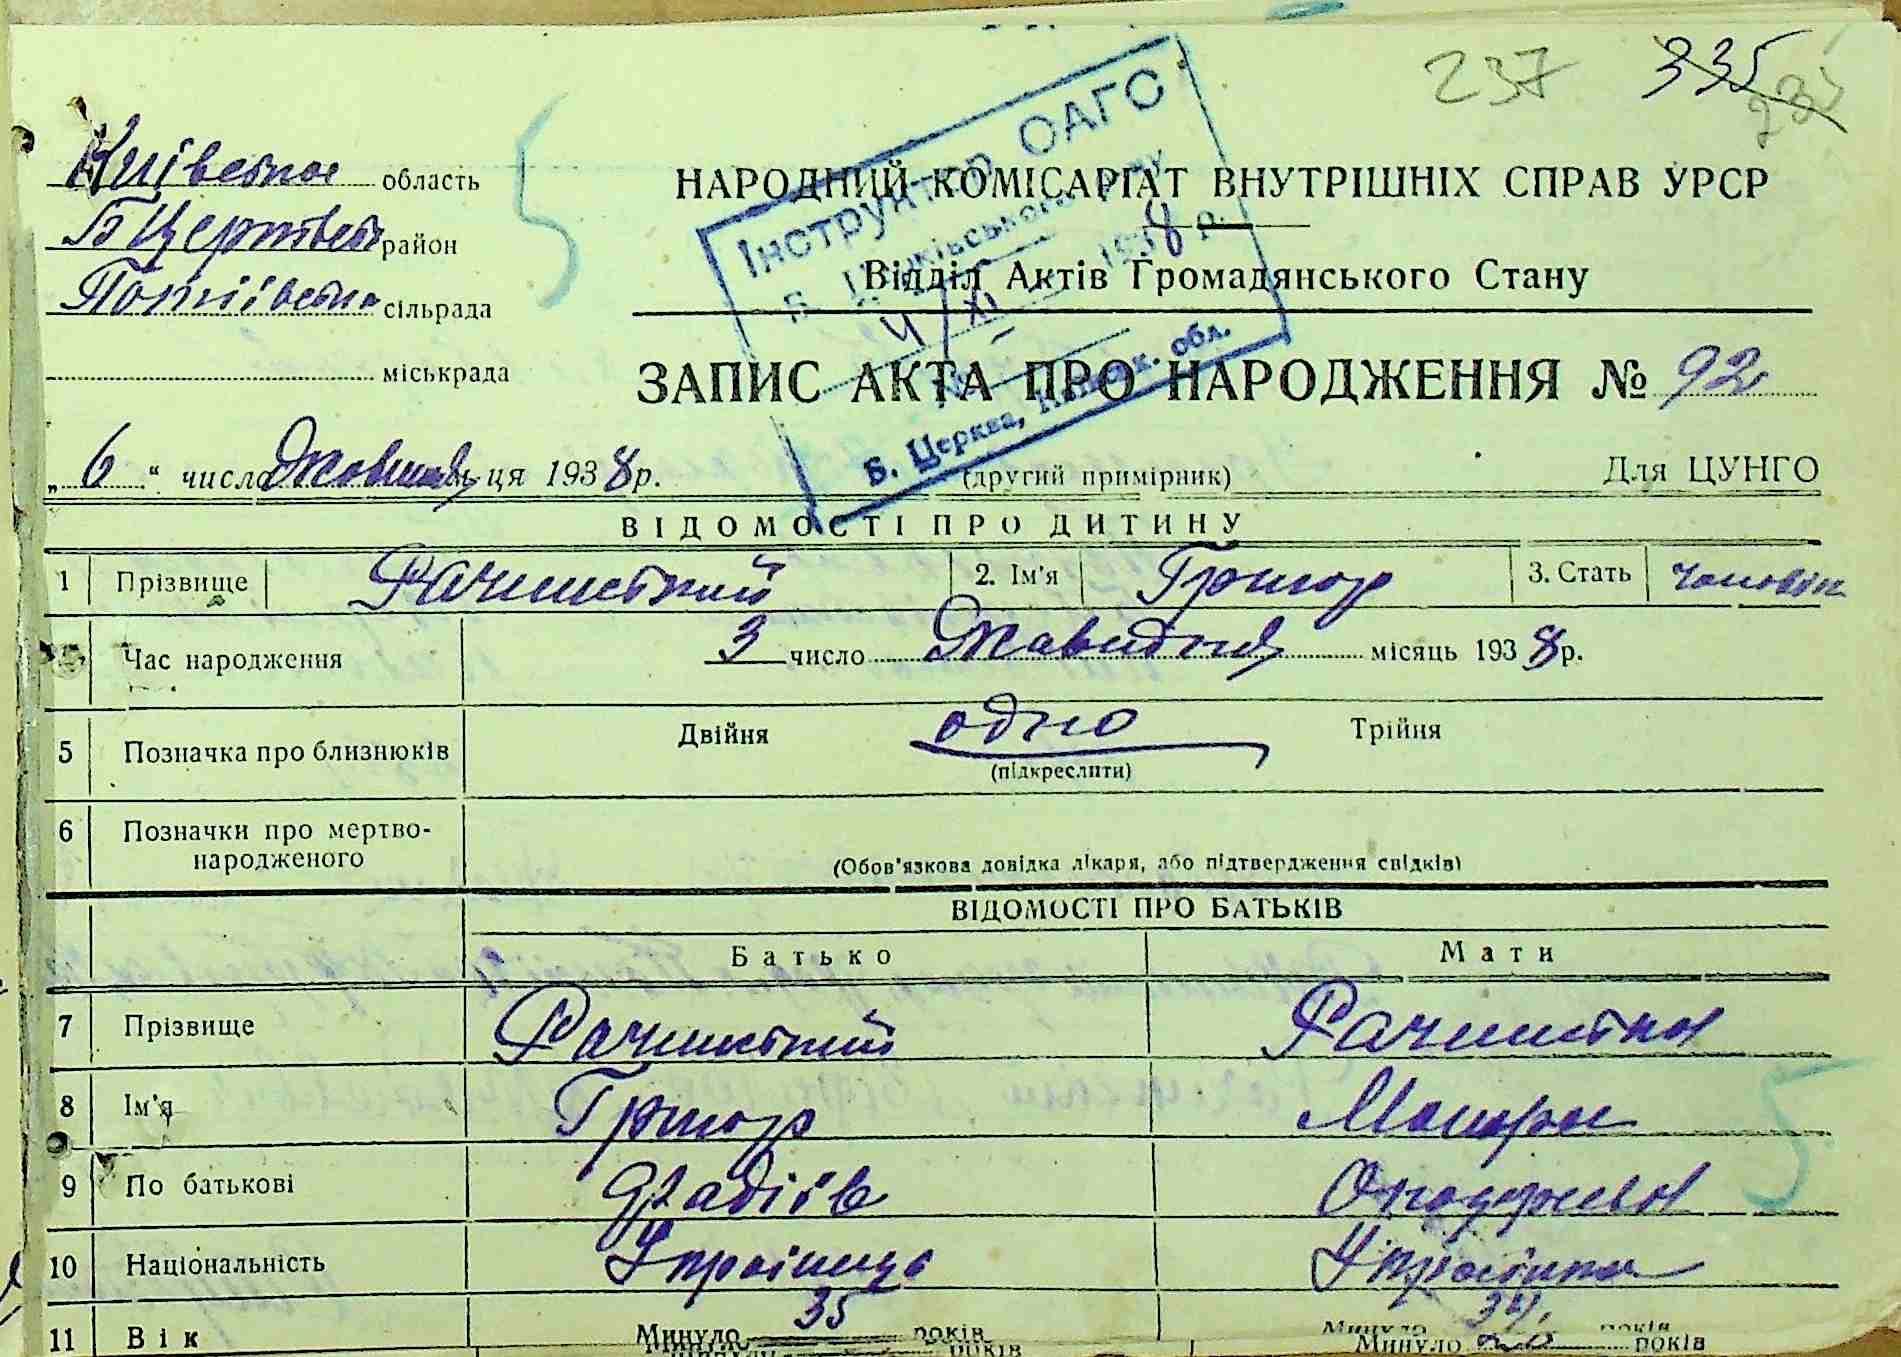 237 335
Київська область
Б Церківський район
Потіївська сільрада
міськрада
НАРОДНИЙ КОМІСАРІАТ ВНУТРІШНІХ СПРАВ УРСР
Відділ Актів Громадянського Стану
Інструктор ОАГС
4/XI 1938 р.
Б. Церква, обл.
ЗАПИС АКТА ПРО НАРОДЖЕННЯ № 92
„6“ числа Жовтня ця 1938 р.
(другий примірник)
Для ЦУНГО
ВІДОМОСТІ ПРО ДИТИНУ
1 Прізвище Рачинський 2. Ім'я Григор 3. Стать чоловік
Час народження 3 число місяць 1938 р.
5 Позначка про близнюків Двійня одно Трійня
(підкреслити)
6 Позначки про мертво-
народженого
(Обов'язкова довідка лікаря, або підтвердження свідків)
ВІДОМОСТІ ПРО БАТЬКІВ
Батько Мати
7 Прізвище Рачинський Рачинська
8 Ім'я Григор
9 По батькові
10 Національність Українець Українка
11 Вік Минуло 35 років Минуло 34 років
Минуло років